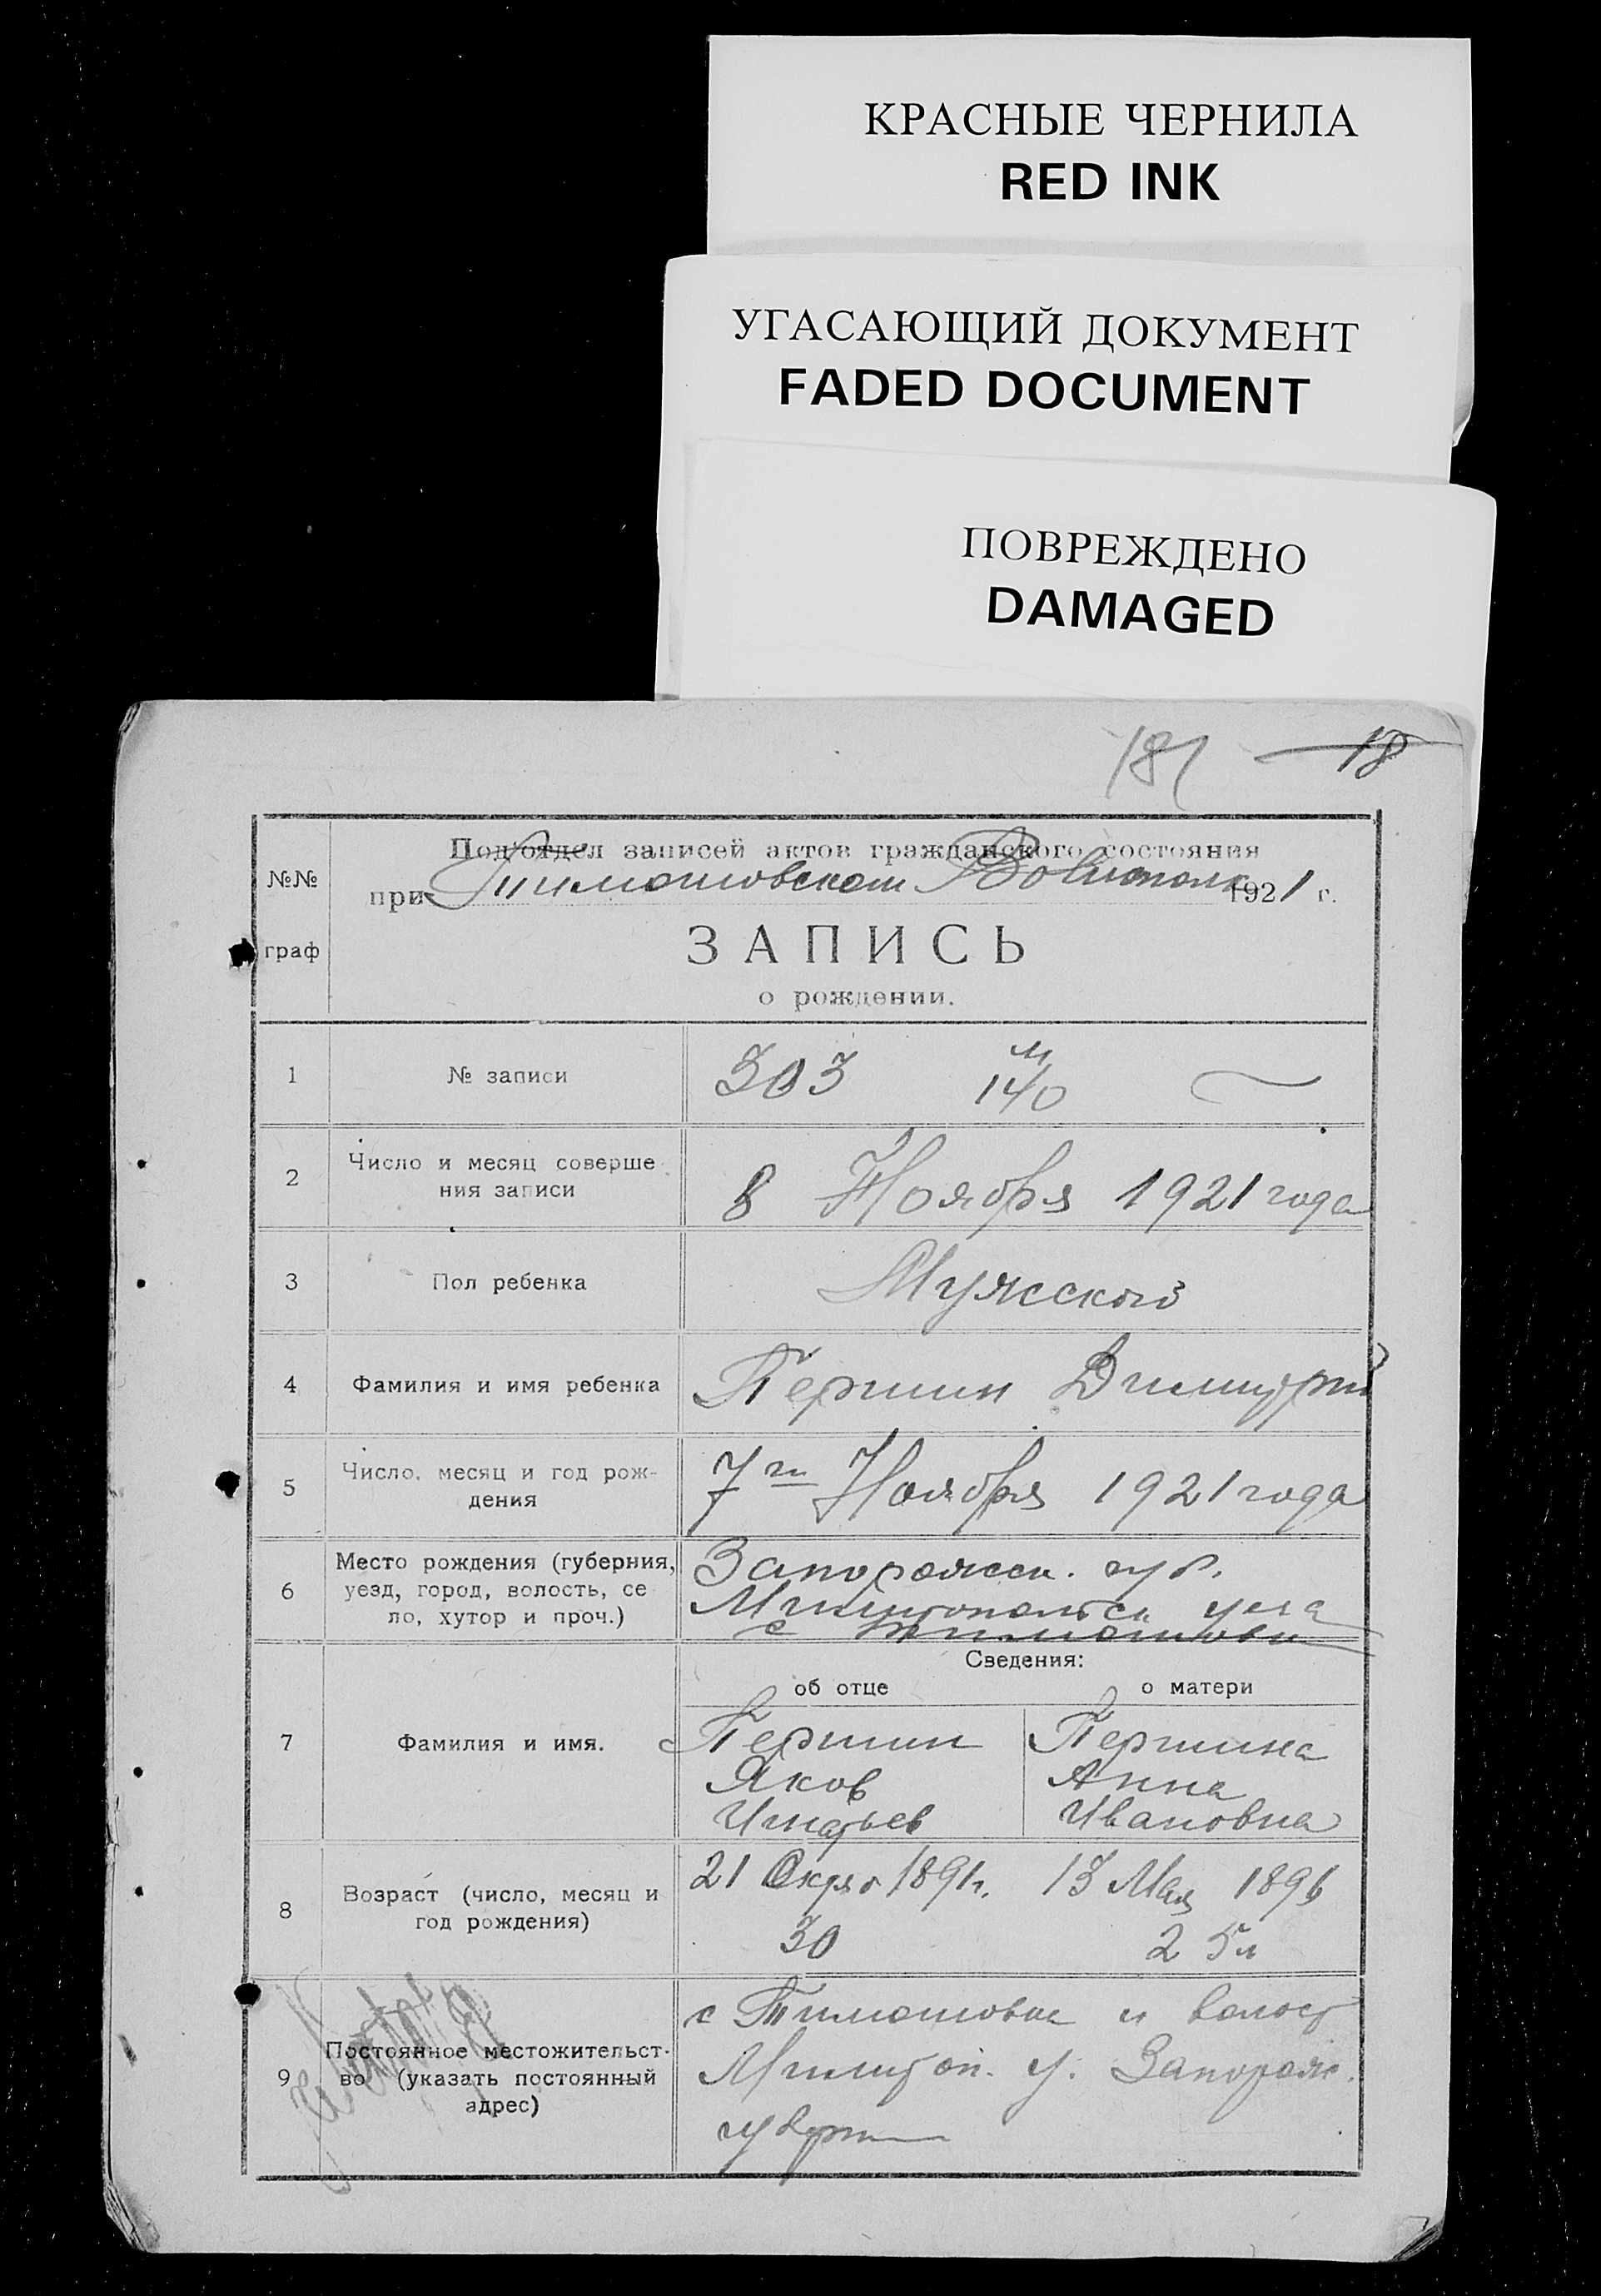 КРАСНЫЕ ЧЕРНИЛА
RED INK
УГАСАЮЩИЙ ДОКУМЕНТ
FADED DOCUMENT
ПОВРЕЖДЕНО
DAMAGED
181 18
Подотдел записей актов гражданского состояния
№№ при Тимошовском 1921 г.
граф
ЗАПИСЬ
о рождении.
1 № записи 303 м 140
2 Число и месяц соверше
ния записи 8 Ноября 1921 года
3 Пол ребенка Мужской
4 Фамилия и имя ребенка Першин Димитрий
5 Число, месяц и год рож-
дения 7го Ноября 1921 года
6 Место рождения (губерния,
уезд, город, волость, се
ло, хутор и проч.)
Запорожск. губ.
Милитопольск уезда
с Тимошовки
Сведения:
об отце о матери
7 Фамилия и имя.
Першин Першина
Яков Анна
Игнатьев Ивановна
8 Возраст (число, месяц и
год рождения)
21 Октяб 1891 г. 13 Мая 1896
30 25 л
9 Постоянное местожительст-
во (указать постоянный
адрес)
с Тимошовка и волост
Милитоп. у. Запорож.
губерн